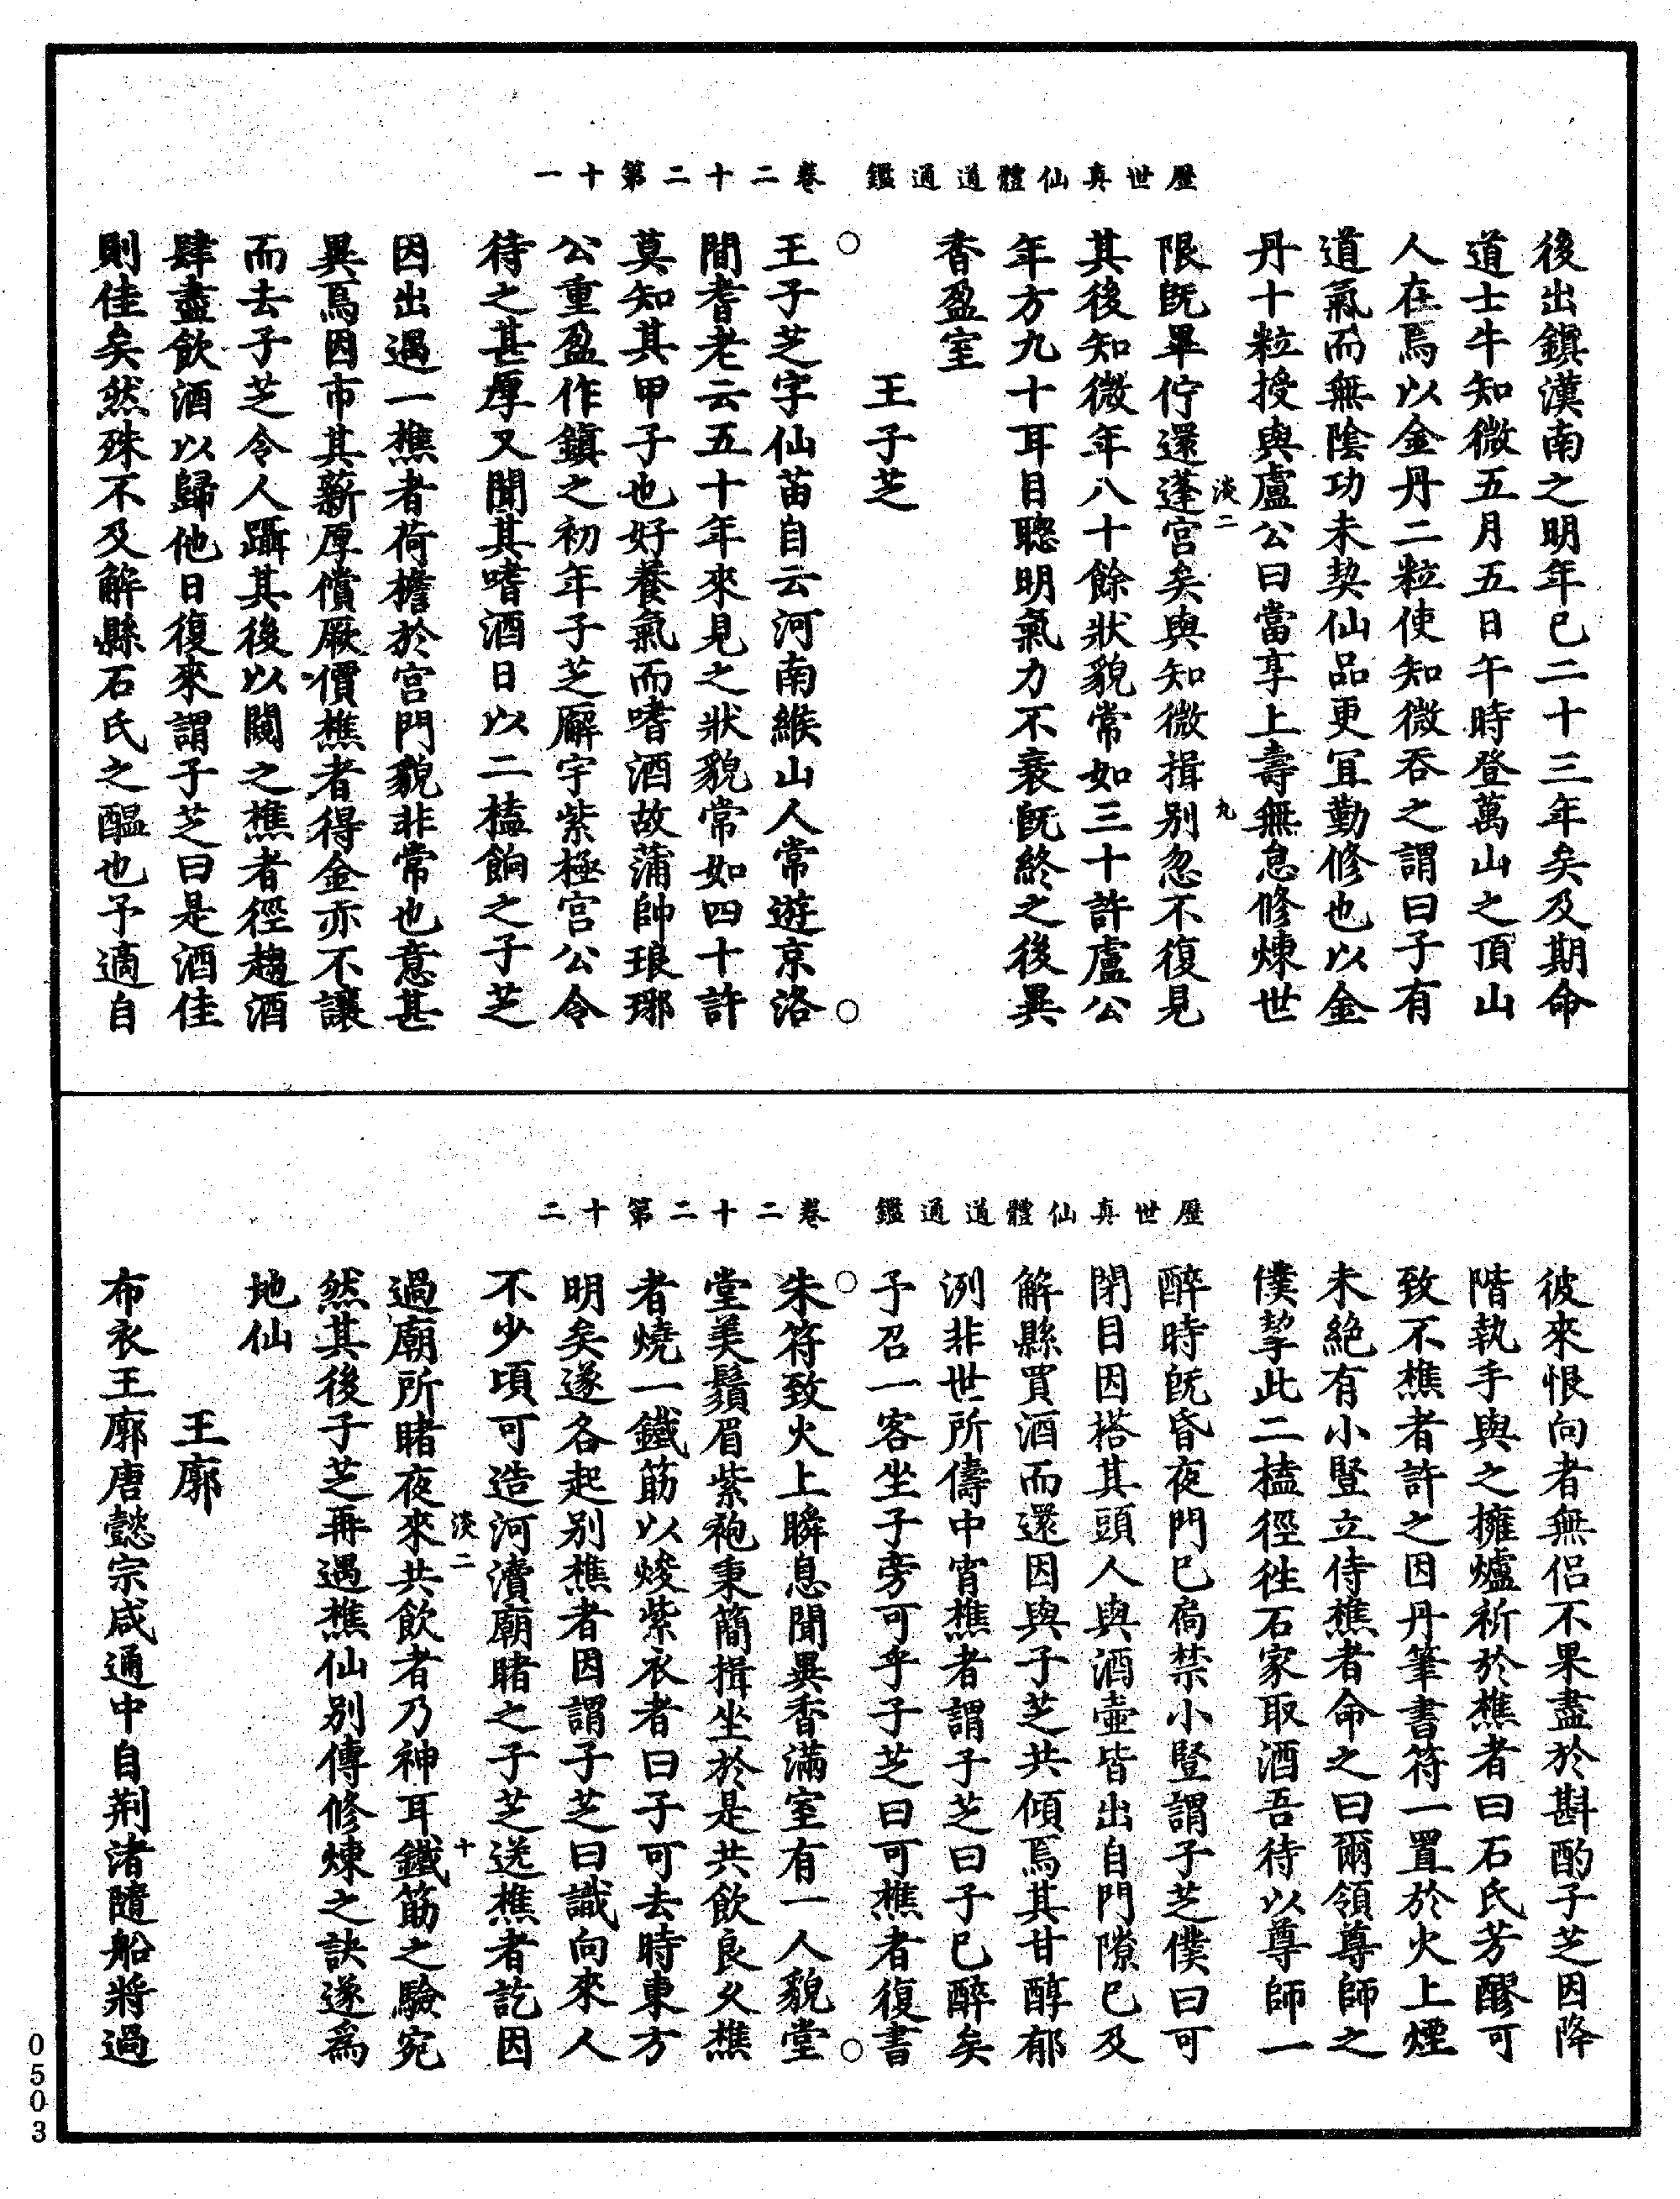 歷世真仙體道通鑑　卷二十二第十一
後出鎮漢南之明年已二十三年矣及期命
道士牛知微五月五日午時登萬山之頂山
人在焉以金丹二粒使知微吞之謂曰子有
道氣而無陰功未契仙品更宜勤修也以金
丹十粒授與盧公曰當享上壽無怠修煉世
淡二　九
限既畢佇還蓬宮矣與知微揖別忽不復見
其後知微年八十餘狀貌常如三十許盧公
年方九十耳目聰明氣力不衰既終之後異
香盈室
王子芝
王子芝字仙苗自云河南緱山人常遊京洛
間耆老云五十年來見之狀貌常如四十許
莫知其甲子也好養氣而嗜酒故蒲帥琅琊
公重盈作鎮之初年子芝廨宇紫極宮公令
待之甚厚又聞其嗜酒日以二榼餉之子芝
因出遇一樵者荷檐於宮門貌非常也意甚
異焉因市其薪厚償厥價樵者得金亦不讓
而去子芝令人躡其後以闚之樵者徑趨酒
肆盡飲酒以歸他日復來謂子芝曰是酒佳
則佳矣然殊不及解縣石氏之醞也予適自
歷世真仙體道通鑑　卷二十二第十二
彼來恨向者無侶不果盡於斟酌子芝因降
階執手與之擁爐祈於樵者曰石氏芳醪可
致不樵者許之因丹筆書符一置於火上煙
未絕有小豎立侍樵者命之曰爾領尊師之
僕挈此二榼徑往石家取酒吾待以尊師一
醉時既昏夜門已扃禁小豎謂子芝僕曰可
閉目因搭其頭人與酒壺皆出自門隙已及
解縣買酒而還因與子芝共傾焉其甘醇郁
洌非世所儔中宵樵者謂子芝曰子已醉矣
予召一客坐子旁可乎子芝曰可樵者復書
朱符致火上瞬息聞異香滿室有一人貌堂
堂美鬚眉紫袍秉簡揖坐於是共飲良久樵
者燒一鐵筯以焌紫衣者曰子可去時東方
明矣遂各起別樵者因謂子芝曰識向來人
不少頃可造河瀆廟睹之子芝送樵者訖因
淡二　十
過廟所睹夜來共飲者乃神耳鐵筯之驗宛
然其後子芝再遇樵仙別傳修煉之訣遂為
地仙
王廓
布衣王廓唐懿宗咸通中自荆渚隨船將過
0503